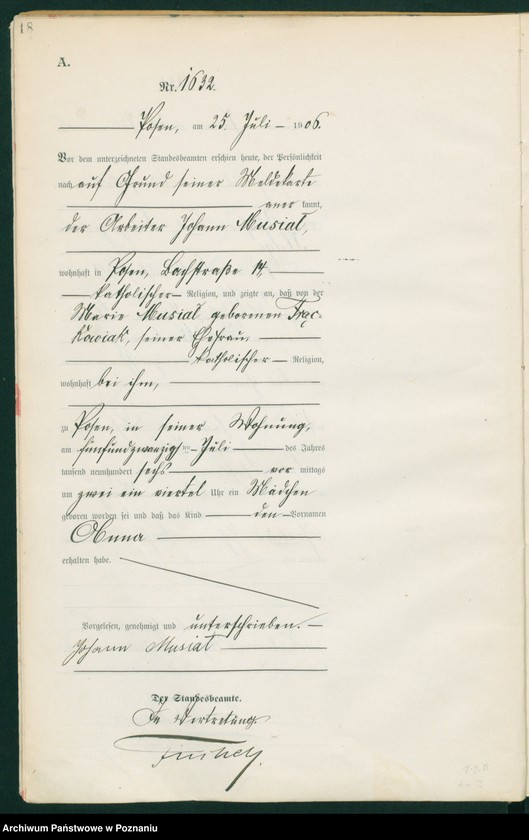 18
A.
Nr. 1632.
Posen, am 25. Juli 1906.
Vor dem unterzeichneten Standesbeamten erschien heute, der Persönlichkeit
nach auf Grund seiner Meldekarte
anerkannt,
der Arbeiter Johann Musiał,
wohnhaft in Posen, Bachstraße 14,
katholischer Religion, und zeigte an, daß von der
Marie Musiał geborenen Frąc-
kowiak, seiner Ehefrau
katholischer Religion,
wohnhaft bei ihm,
zu Posen, in seiner Wohnung,
am fünfundzwanzigsten Juli des Jahres
tausend neunhundert sechs vormittags
um zwei ein viertel Uhr ein Mädchen
geboren worden sei und daß das Kind den Vornamen
Anna
erhalten habe.
Vorgelesen, genehmigt und unterschrieben.
Johann Musiał
Der Standesbeamte.
In Vertretung.
Archiwum Państwowe w Poznaniu